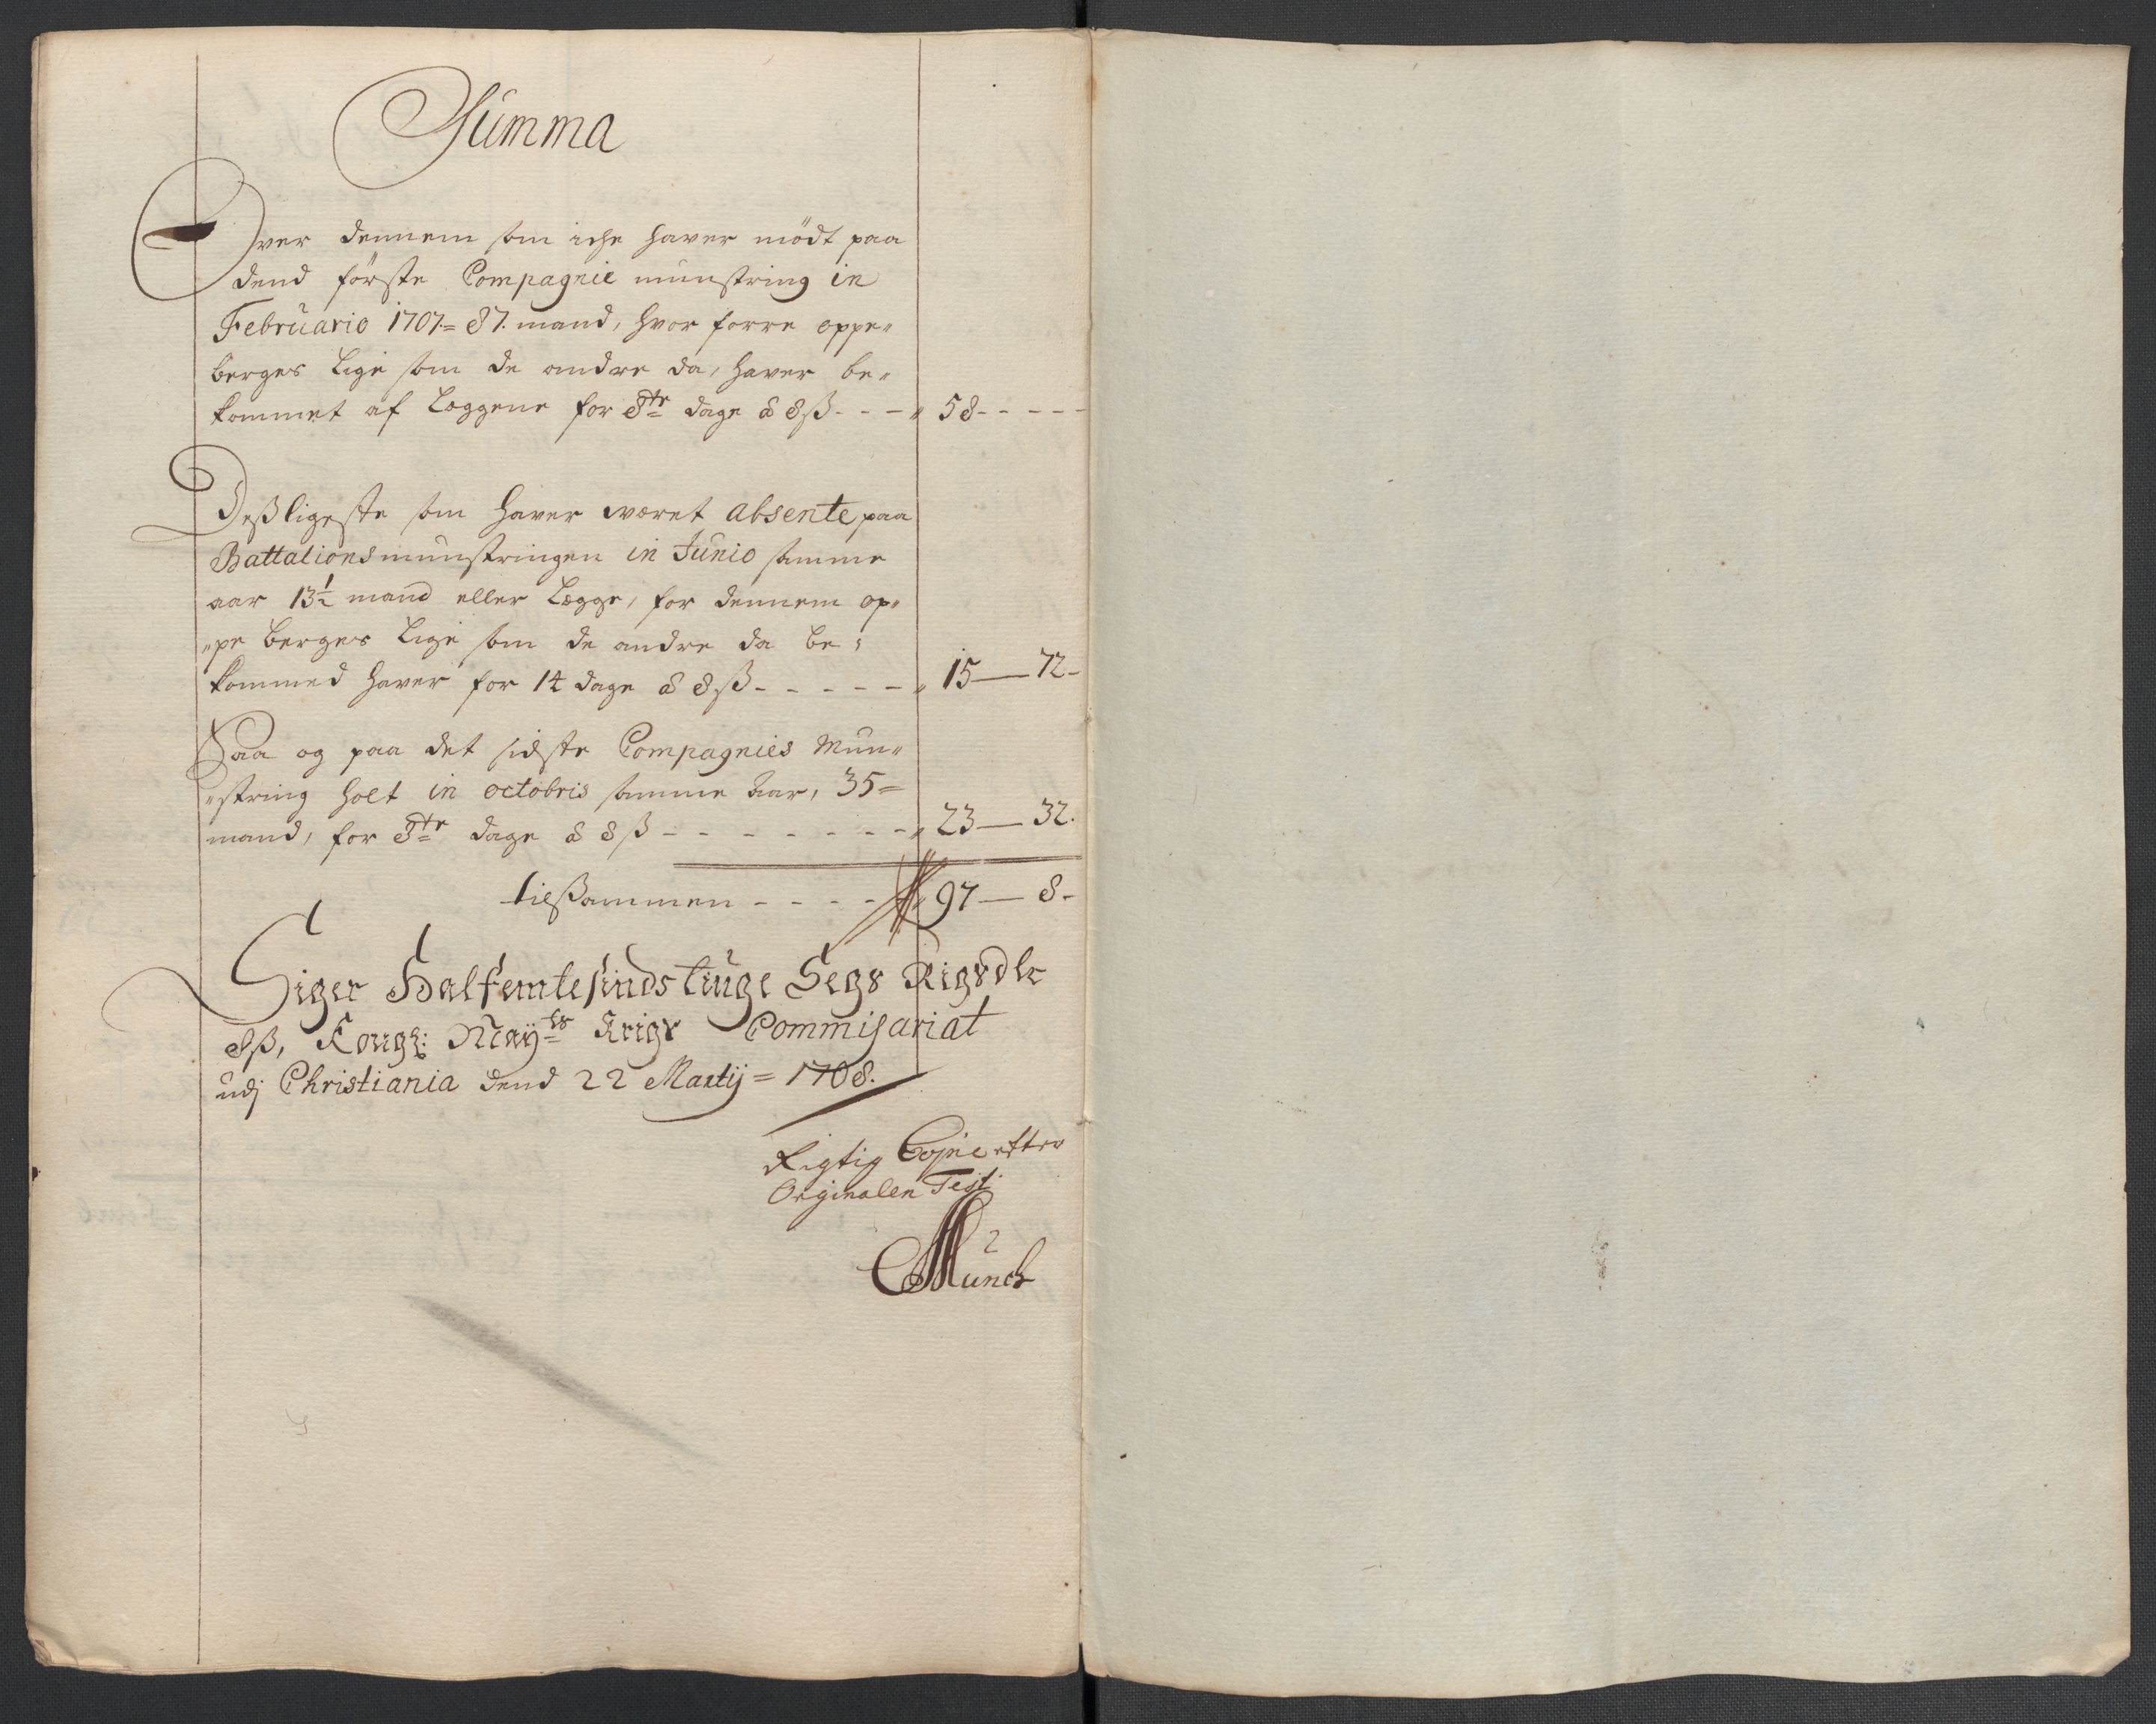 Summa
Over dennem som iche haver mödt paa
dend förste Compagnie munstring in
Februario 1707.= 87. mand, hvor forre oppe„
berges lige som de andre da, haver be„
kommet af Læggene for 8te dage à 8ß - - - „ 58 - - - - -
Deßligeste som haver været absente paa
Battalions munstringen in Junio samme
aar 13½ mand eller Lægge, for dennem op„
„pe berges lige som de andre da be„
kommed haver for 14 dage à 8ß - - - - - „ 15 — 72 -
Saa og paa det sidste Compagnies Mun„
„string holt in octobris samme Aar, 35=
mand, for 8te dage à 8ß - - - - - - - „ 23 — 32.
tilßammen - - - - 97 — 8 -
Siger Halfemtesindstiuge Segs Rigsdlr
8ß, Kongl: Mayts Krigs Commisariat
udj Christiania dend 22 Martij = 1708.
Rigtig Copie efter
Orginalen Test.
Münch